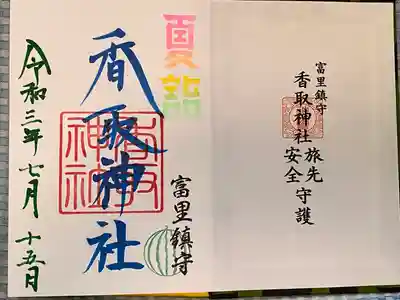 夏詣
富里鎮守
香取神社
香取神社
令和三年七月十五日
富里鎮守
香取神社
旅先安全守護